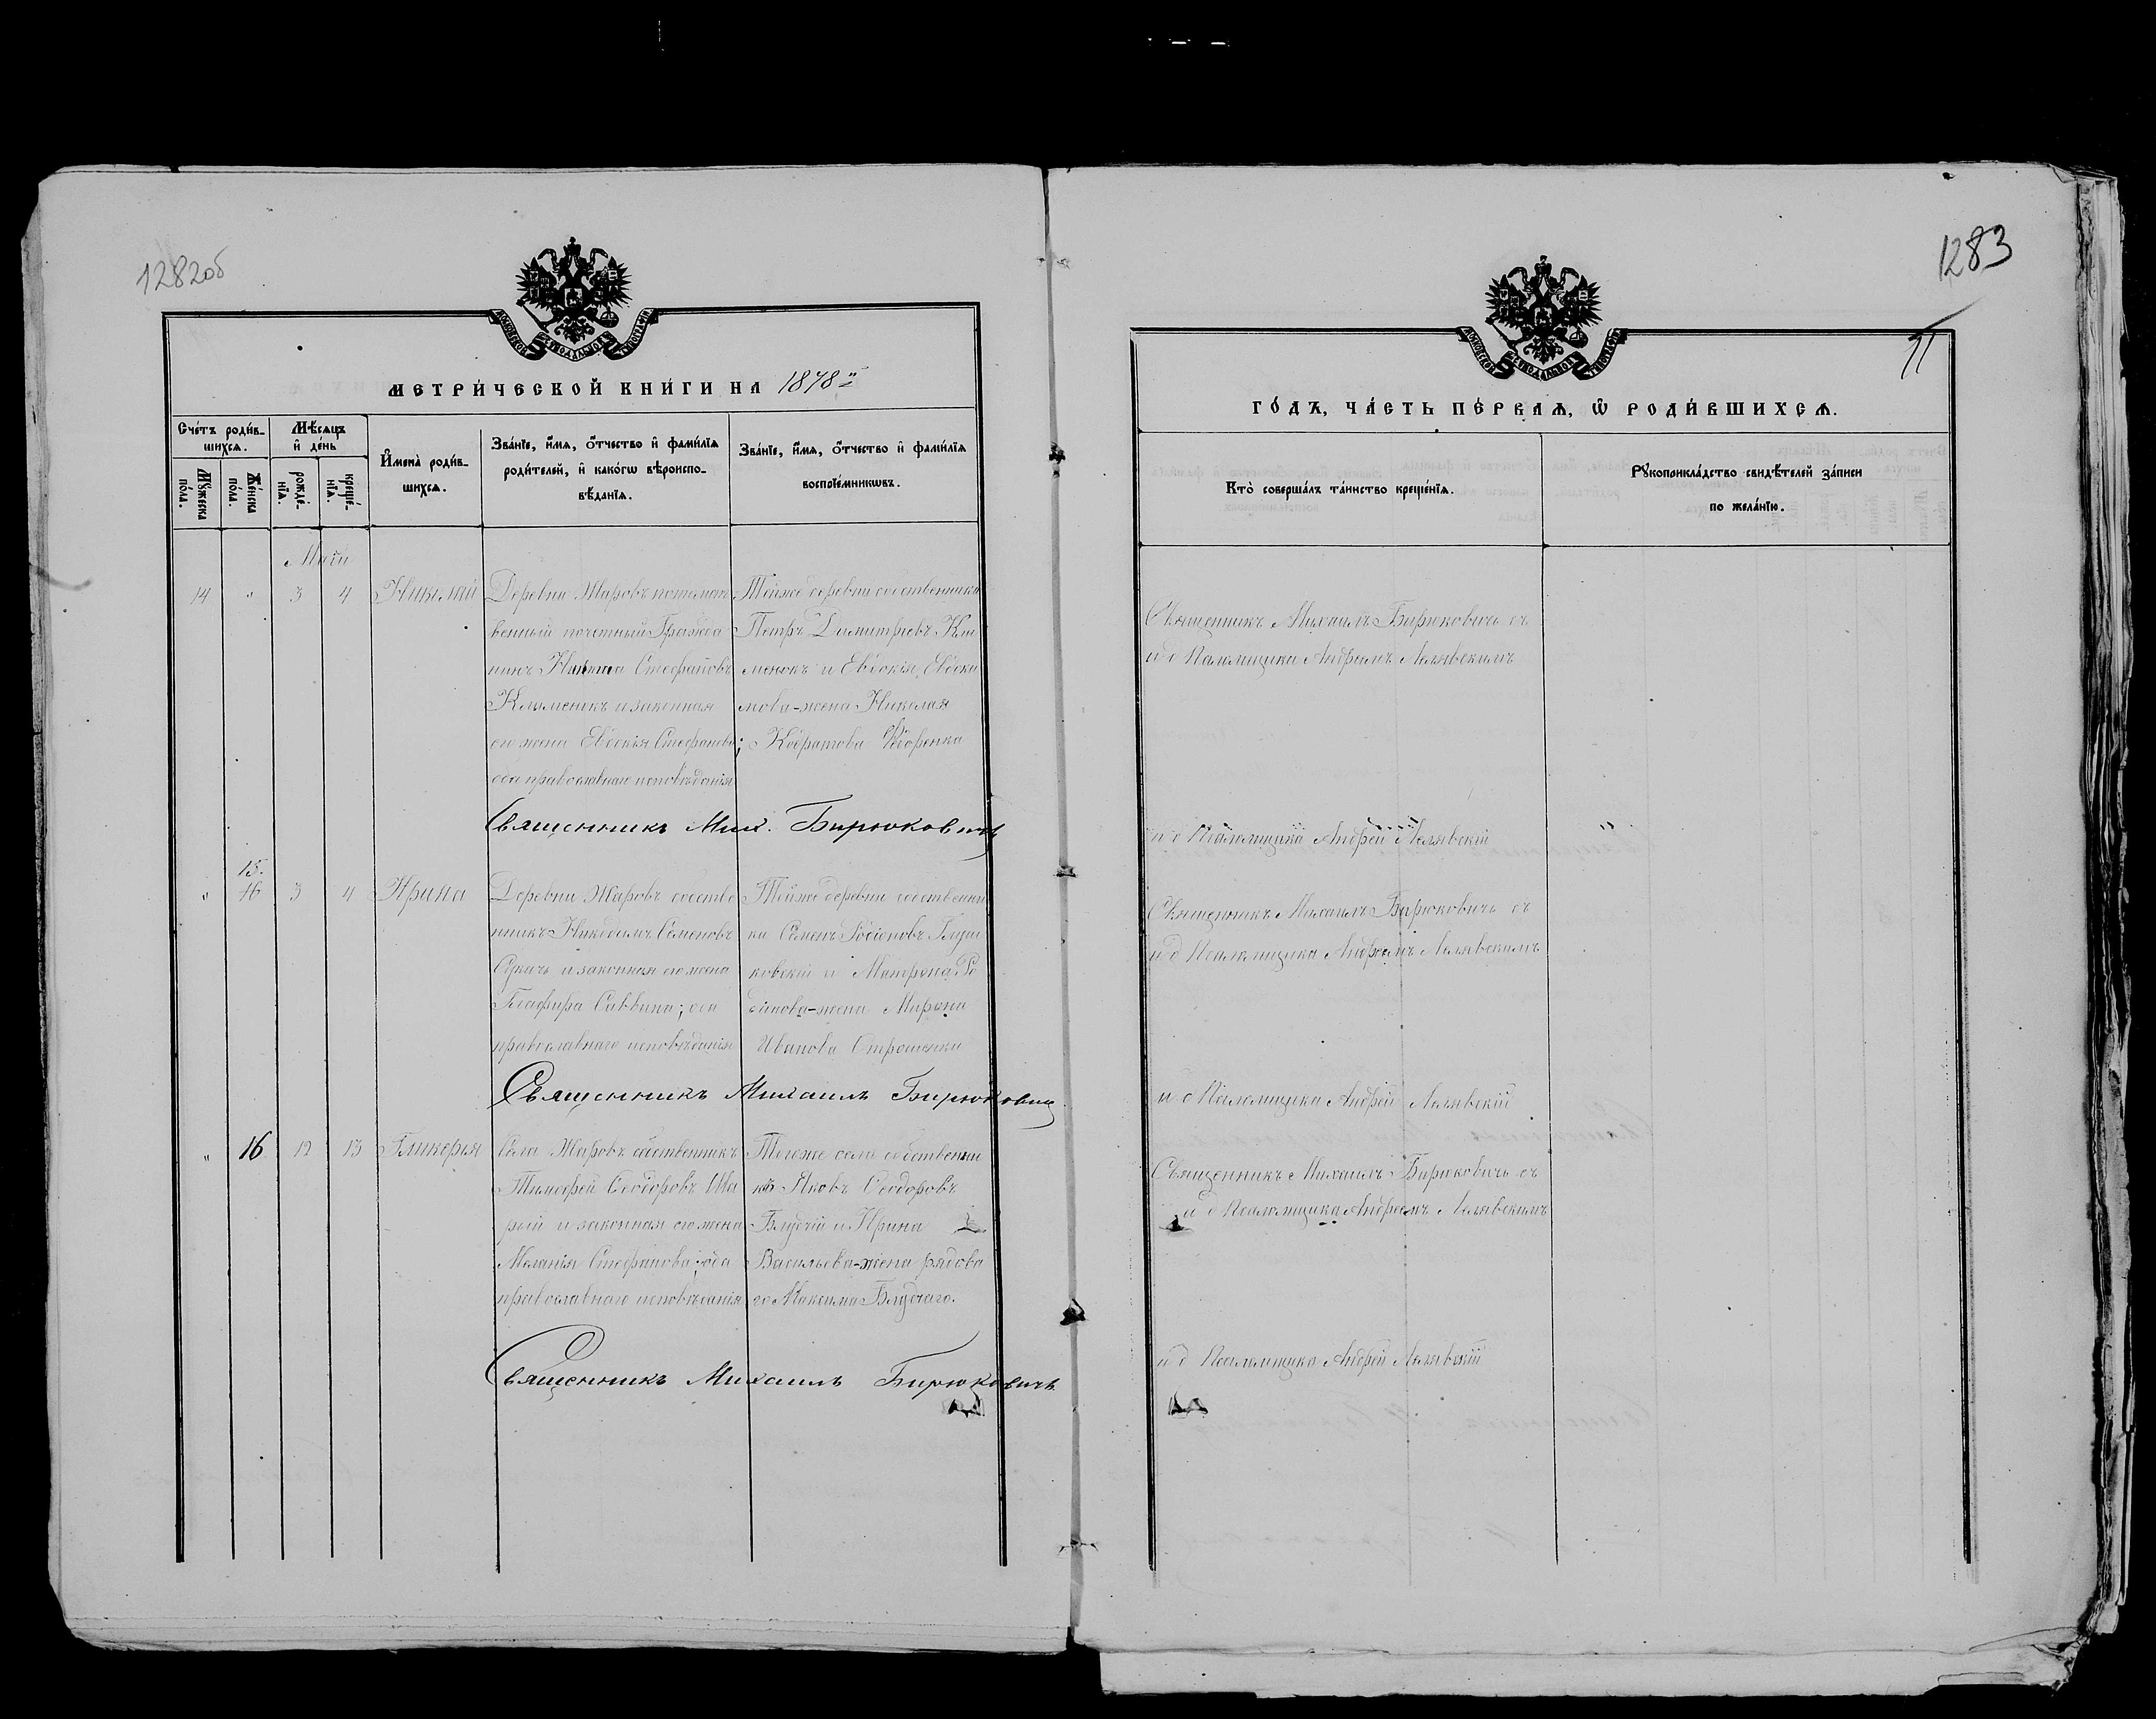 1282об
МОСКОВСКОЙ СѴНОДАЛЬНОЙ ТИПОГРАФІИ
МЕТРИ́ЧЕСКОЙ КНИ́ГИ НА 1878й
Сче́тъ роди́в-
шихся.
Мѣ́сяцъ
и҆ де́нь
Мꙋ́жеска
по́ла.
Же́нска
по́ла.
рожде́-
нїѧ.
креще́-
нїѧ.
И҆мена̀ роди́в-
шихсѧ.
Зва́нїе, и҆́мѧ, ѻ҆́тчество и҆ фами́лїѧ
роди́телей, и҆ како́гѡ вѣроиспо-
вѣ́данїѧ.
Зва́нїе, и҆́мѧ, ѻ҆́тчество и҆ фами́лїѧ
воспрїе́мникѡвъ.
14 " 3 4 Николай
Деревни Жаровъ потомст
венный почетный Гражда
нинъ Никита Стефановъ
Клименокъ и законная
его жена Евдокія Стефанова;
оба православнаго исповѣданія
Тойже деревни собственникъ
Петръ Димитріевъ Кли
менокъ и Евдокія Евдоки
мова-жена Николая
Кодратова
Священникъ Мих. Бирюковичъ
15.
" 16 3 4 Ирина
Деревни Жаровъ собстве
нникъ Никодимъ Семеновъ
и законная его жена
Глафира Саввина; оба
православнаго исповѣданія
Тойже деревни собственни
ки Семенъ Родіоновъ
и Матрона Ро
діонова-жена Мирона
Иванова
Священникъ Михаилъ Бирюковичъ
" 16 12 13 Гликерія
Села Жаровъ собственникъ
Тимофей Ѳеодоровъ Ша
рый и законная его жена
Меланія Стефанова; оба
православнаго исповѣданія
Тогоже села собственни
къ Яковъ Ѳеодоровъ
Блудчій и Ирина
Васильева-жена рядова
го Максима Блудчаго.
Священникъ Михаилъ Бирюковичъ
1283
11
МОСКОВСКОЙ СѴНОДАЛЬНОЙ ТИПОГРАФІИ
ГО́ДЪ, ЧА́СТЬ ПЕ́РВАѦ, Ѡ҆ РОДИ́ВШИХСѦ.
Кто̀ соверша́лъ та́инство креще́нїѧ.
Рꙋкоприкла́дство свидѣ́телей за́писи
по жела́нїю.
Священникъ Михаилъ Бирюковичъ съ
и д Псаломщика Андреемъ Лелявскимъ
и д Псаломщика Андрей Лелявскій
Священникъ Михаилъ Бирюковичъ съ
и д Псаломщика Андреемъ Лелявскимъ
и д Псаломщика Андрей Лелявскій
Священникъ Михаилъ Бирюковичъ съ
и д Псаломщика Андреемъ Лелявскимъ
и д Псаломщика Андрей Лелявскій